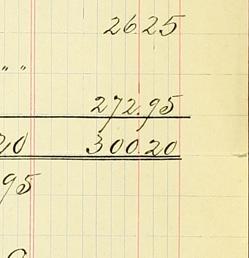 26.25
" "
272.95
20 300.20
95